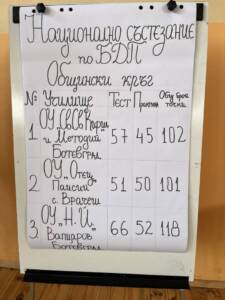 Национално състезание
по БДП
Общински кръг
№ Училище Тест Практика Общ брой точки
1. ОУ "Св. Св. Кирил и Методий" Ботевград 57 45 102
2. ОУ "Отец Паисий" с. Врачеш 51 50 101
3. ОУ "Н. Й. Вапцаров" Ботевград 66 52 118